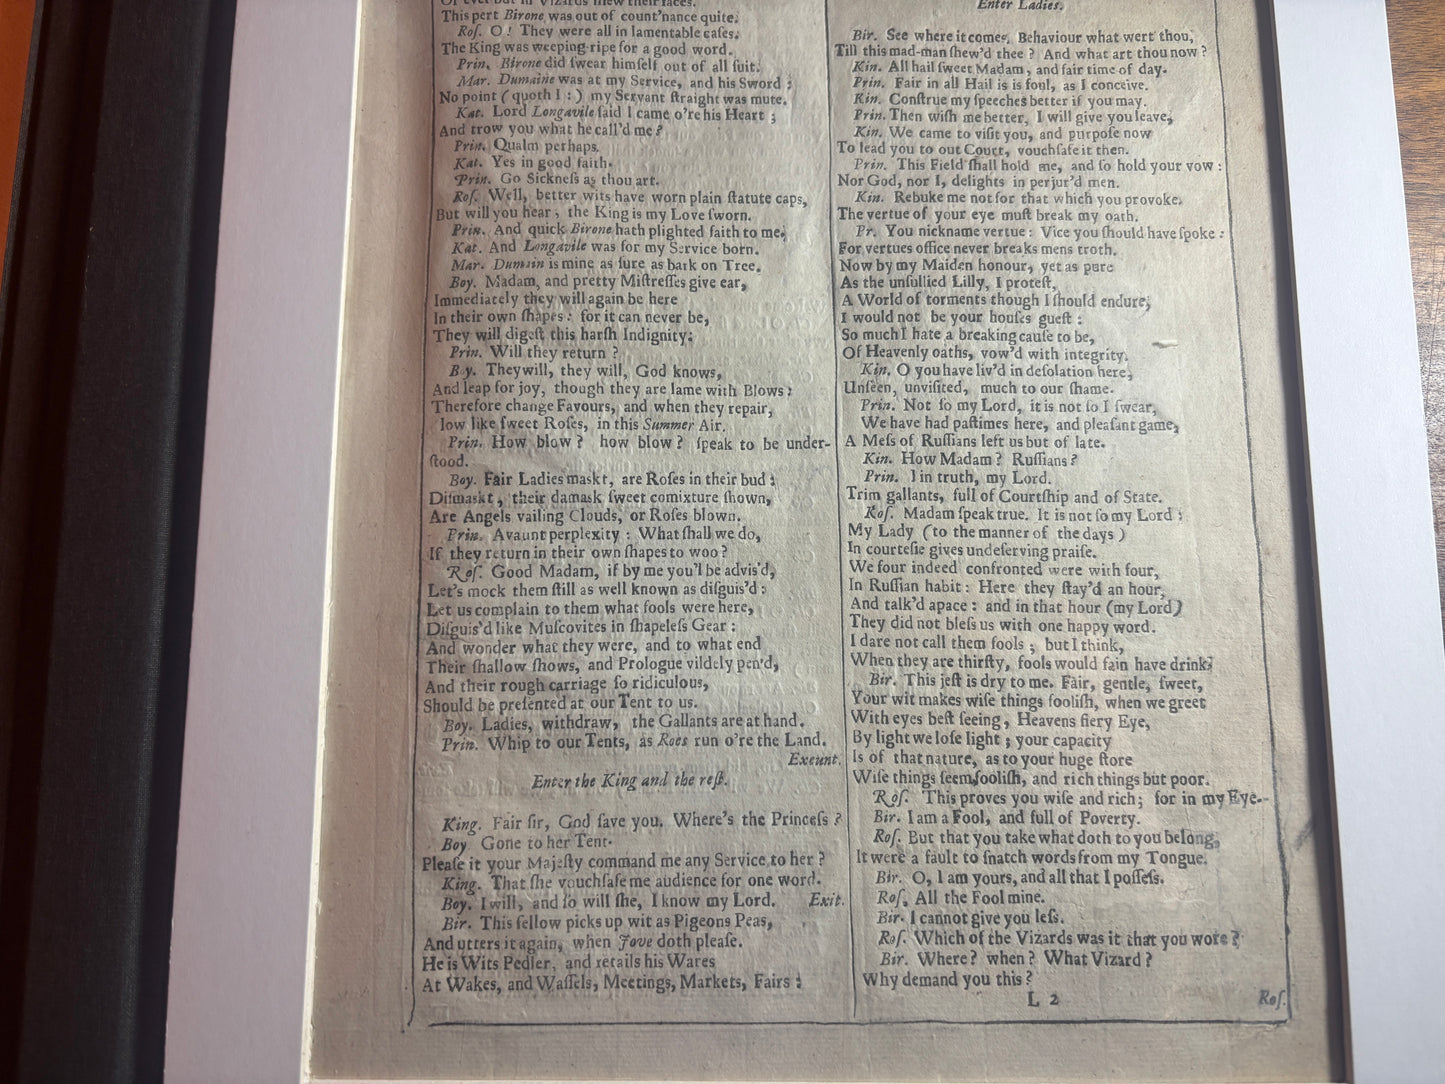 Of ever but in Vizards ſhew their faces.
This pert Birone was out of count'nance quite.
Roſ. O! They were all in lamentable caſes.
The King was weeping-ripe for a good word.
Prin. Birone did ſwear himſelf out of all ſuit.
Mar. Dumaine was at my Service, and his Sword:
No point (quoth I:) my Servant ſtraight was mute.
Kat. Lord Longavile ſaid I came o're his Heart;
And trow you what he call'd me?
Prin. Qualm perhaps.
Kat. Yes in good faith.
Prin. Go Sickneſs as thou art.
Roſ. Well, better wits have worn plain ſtatute caps,
But will you hear; the King is my Love ſworn.
Prin. And quick Birone hath plighted faith to me.
Kat. And Longavile was for my Service born.
Mar. Dumain is mine as ſure as bark on Tree.
Boy. Madam, and pretty Miſtreſſes give ear,
Immediately they will again be here
In their own ſhapes: for it can never be,
They will digeſt this harſh Indignity.
Prin. Will they return?
Boy. They will, they will, God knows,
And leap for joy, though they are lame with Blows:
Therefore change Favours, and when they repair,
low like ſweet Roſes, in this Summer Air.
Prin. How blow? how blow? ſpeak to be under-
ſtood.
Boy. Fair Ladies maskt, are Roſes in their bud:
Diſmaskt, their damask ſweet comixture ſhown,
Are Angels vailing Clouds, or Roſes blown.
Prin. Avaunt perplexity: What ſhall we do,
If they return in their own ſhapes to woo?
Roſ. Good Madam, if by me you'l be advis'd,
Let's mock them ſtill as well known as diſguis'd:
Let us complain to them what fools were here,
Diſguis'd like Muſcovites in ſhapeleſs Gear:
And wonder what they were, and to what end
Their ſhallow ſhows, and Prologue vildely pen'd,
And their rough carriage ſo ridiculous,
Should be preſented at our Tent to us.
Boy. Ladies, withdraw, the Gallants are at hand.
Prin. Whip to our Tents, as Roes run o're the Land.
Exeunt.
Enter the King and the reſt.
King. Fair ſir, God ſave you. Where's the Princeſs?
Boy Gone to her Tent.
Pleaſe it your Majeſty command me any Service to her?
King. That ſhe vouchſafe me audience for one word.
Boy. I will, and ſo will ſhe, I know my Lord. Exit.
Bir. This fellow picks up wit as Pigeons Peas,
And utters it again, when Jove doth pleaſe.
He is Wits Pedler, and retails his Wares
At Wakes, and Waſſels, Meetings, Markets, Fairs:
Enter Ladies.
Bir. See where it comes, Behaviour what wert thou,
Till this mad-man ſhew'd thee? And what art thou now?
Kin. All hail ſweet Madam, and fair time of day.
Prin. Fair in all Hail is is foul, as I conceive.
Kin. Conſtrue my ſpeeches better if you may.
Prin. Then wiſh me better, I will give you leave,
Kin. We came to viſit you, and purpoſe now
To lead you to out Court, vouchſafe it then.
Prin. This Field ſhall hold me, and ſo hold your vow:
Nor God, nor I, delights in perjur'd men.
Kin. Rebuke me not for that which you provoke.
The vertue of your eye muſt break my oath.
Pr. You nickname vertue: Vice you ſhould have ſpoke:
For vertues office never breaks mens troth.
Now by my Maiden honour, yet as pure
As the unſullied Lilly, I proteſt,
A World of torments though I ſhould endure,
I would not be your houſes gueſt:
So much I hate a breaking cauſe to be,
Of Heavenly oaths, vow'd with integrity.
Kin. O you have liv'd in deſolation here,
Unſeen, unviſited, much to our ſhame.
Prin. Not ſo my Lord, it is not ſo I ſwear,
We have had paſtimes here, and pleaſant game,
A Meſs of Ruſſians left us but of late.
Kin. How Madam? Ruſſians?
Prin. I in truth, my Lord.
Trim gallants, full of Courtſhip and of State.
Roſ. Madam ſpeak true. It is not ſo my Lord:
My Lady (to the manner of the days)
In courteſie gives undeſerving praiſe.
We four indeed confronted were with four,
In Ruſſian habit: Here they ſtay'd an hour,
And talk'd apace: and in that hour (my Lord)
They did not bleſs us with one happy word.
I dare not call them fools; but I think,
When they are thirſty, fools would fain have drink.
Bir. This jeſt is dry to me. Fair, gentle, ſweet,
Your wit makes wiſe things fooliſh, when we greet
With eyes beſt ſeeing, Heavens fiery Eye,
By light we loſe light; your capacity
Is of that nature, as to your huge ſtore
Wiſe things ſeem fooliſh, and rich things but poor.
Roſ. This proves you wiſe and rich; for in my Eye--
Bir. I am a Fool, and full of Poverty.
Roſ. But that you take what doth to you belong,
It were a fault to ſnatch words from my Tongue.
Bir. O, I am yours, and all that I poſſeſs.
Roſ. All the Fool mine.
Bir. I cannot give you leſs.
Roſ. Which of the Vizards was it that you wore?
Bir. Where? when? What Vizard?
Why demand you this?
L 2
Roſ.